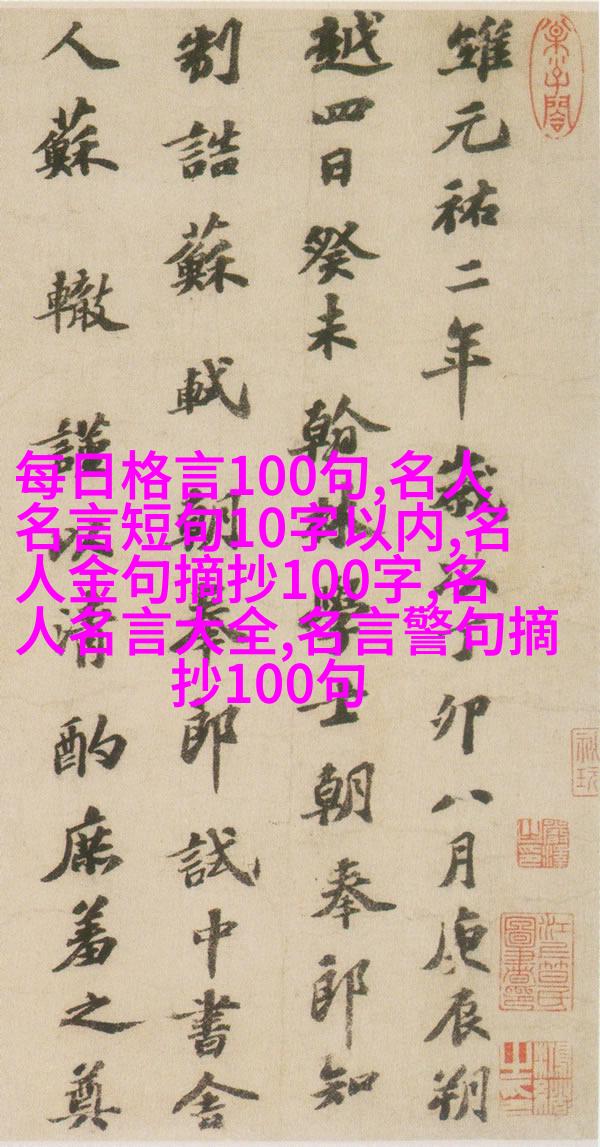 維元祐二年歲次丁卯八月庚辰朔
越四日癸未翰林學士朝奉郎知
制誥蘇軾朝奉郎試中書舍
人蘇轍謹以清酌庶羞之奠
每日格言100句,名人
名言短句10字以内,名
人金句摘抄100字,名
人名言大全,名言警句摘
抄100句